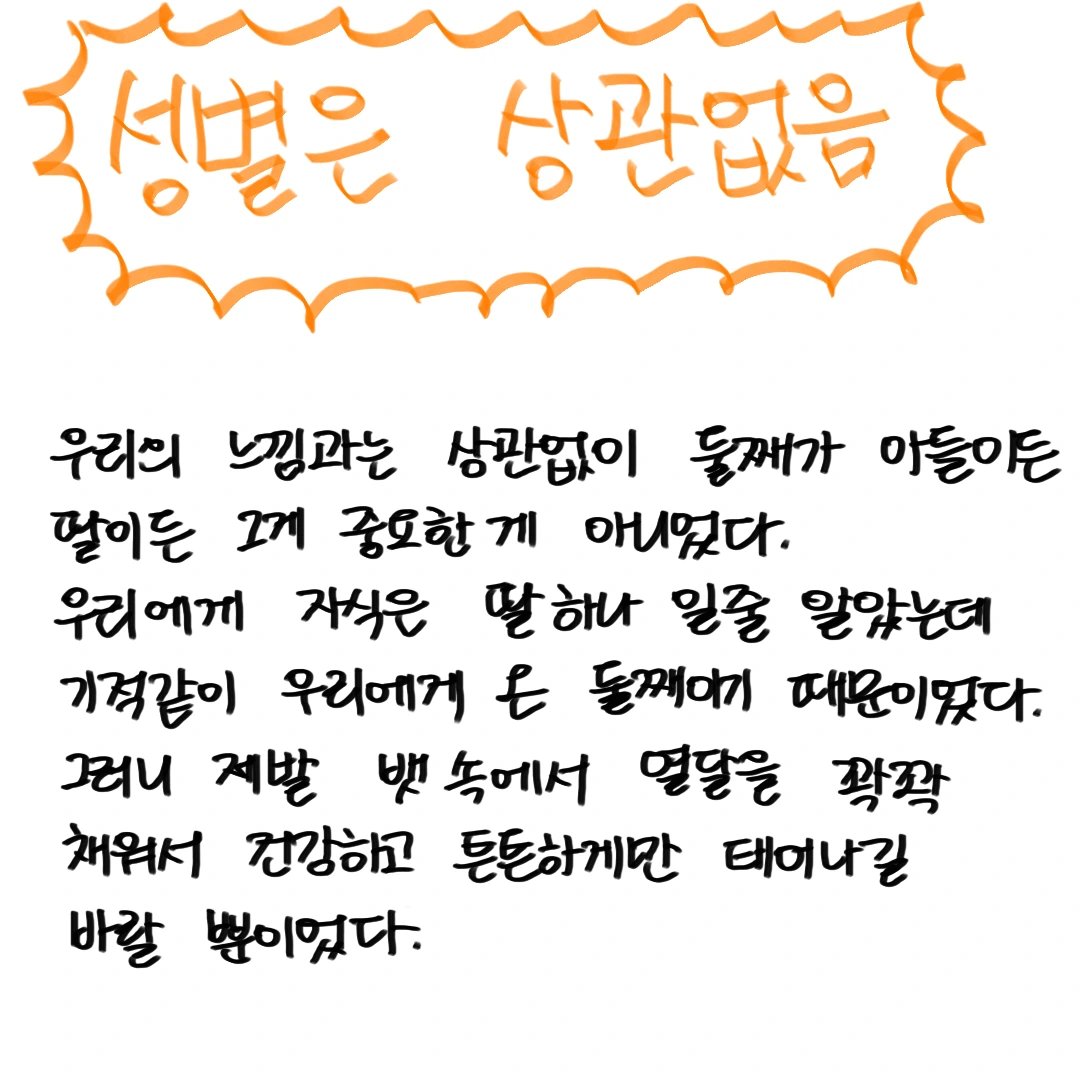 성별은 상관없음
우리의 느낌과는 상관없이 둘째가 아들이든
딸이든 그게 중요한 게 아니었다.
우리에게 자식은 딸 하나 일줄 알았는데
기적같이 우리에게 온 둘째이기 때문이었다.
그러니 제발 뱃 속에서 열달을 꽉꽉
채워서 건강하고 튼튼하게만 태어나길
바랄 뿐이었다.